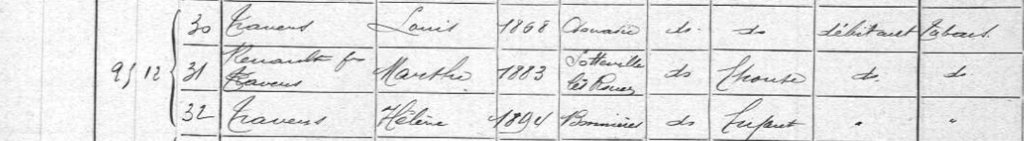 30 Travers Louis 1868 do do débitant tabacs
95 12 31 Renault fe Travers Marthe 1883 Sotteville lès Rouen do Epouse do do
32 Travers Hélène 1894 Bonnières do Enfant " "